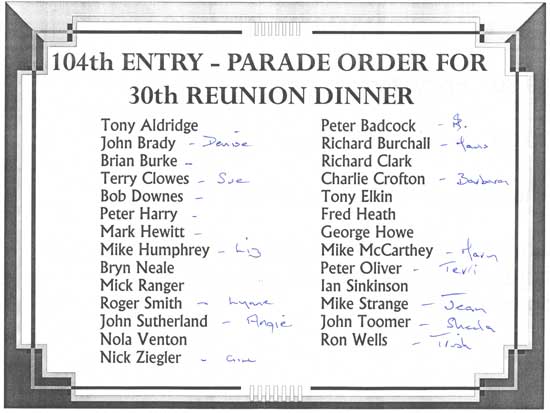 104th ENTRY - PARADE ORDER FOR
30th REUNION DINNER
Tony Aldridge
John Brady - Denise
Brian Burke -
Terry Clowes - Sue
Bob Downes -
Peter Harry -
Mark Hewitt -
Mike Humphrey - Liz
Bryn Neale
Mick Ranger
Roger Smith - Lynne
John Sutherland - Angie
Nola Venton
Nick Ziegler -
Peter Badcock -
Richard Burchall -
Richard Clark
Charlie Crofton - Barbara
Tony Elkin
Fred Heath
George Howe
Mike McCarthey - Mary
Peter Oliver - Terri
Ian Sinkinson
Mike Strange - Jean
John Toomer - Sheila
Ron Wells - Trish